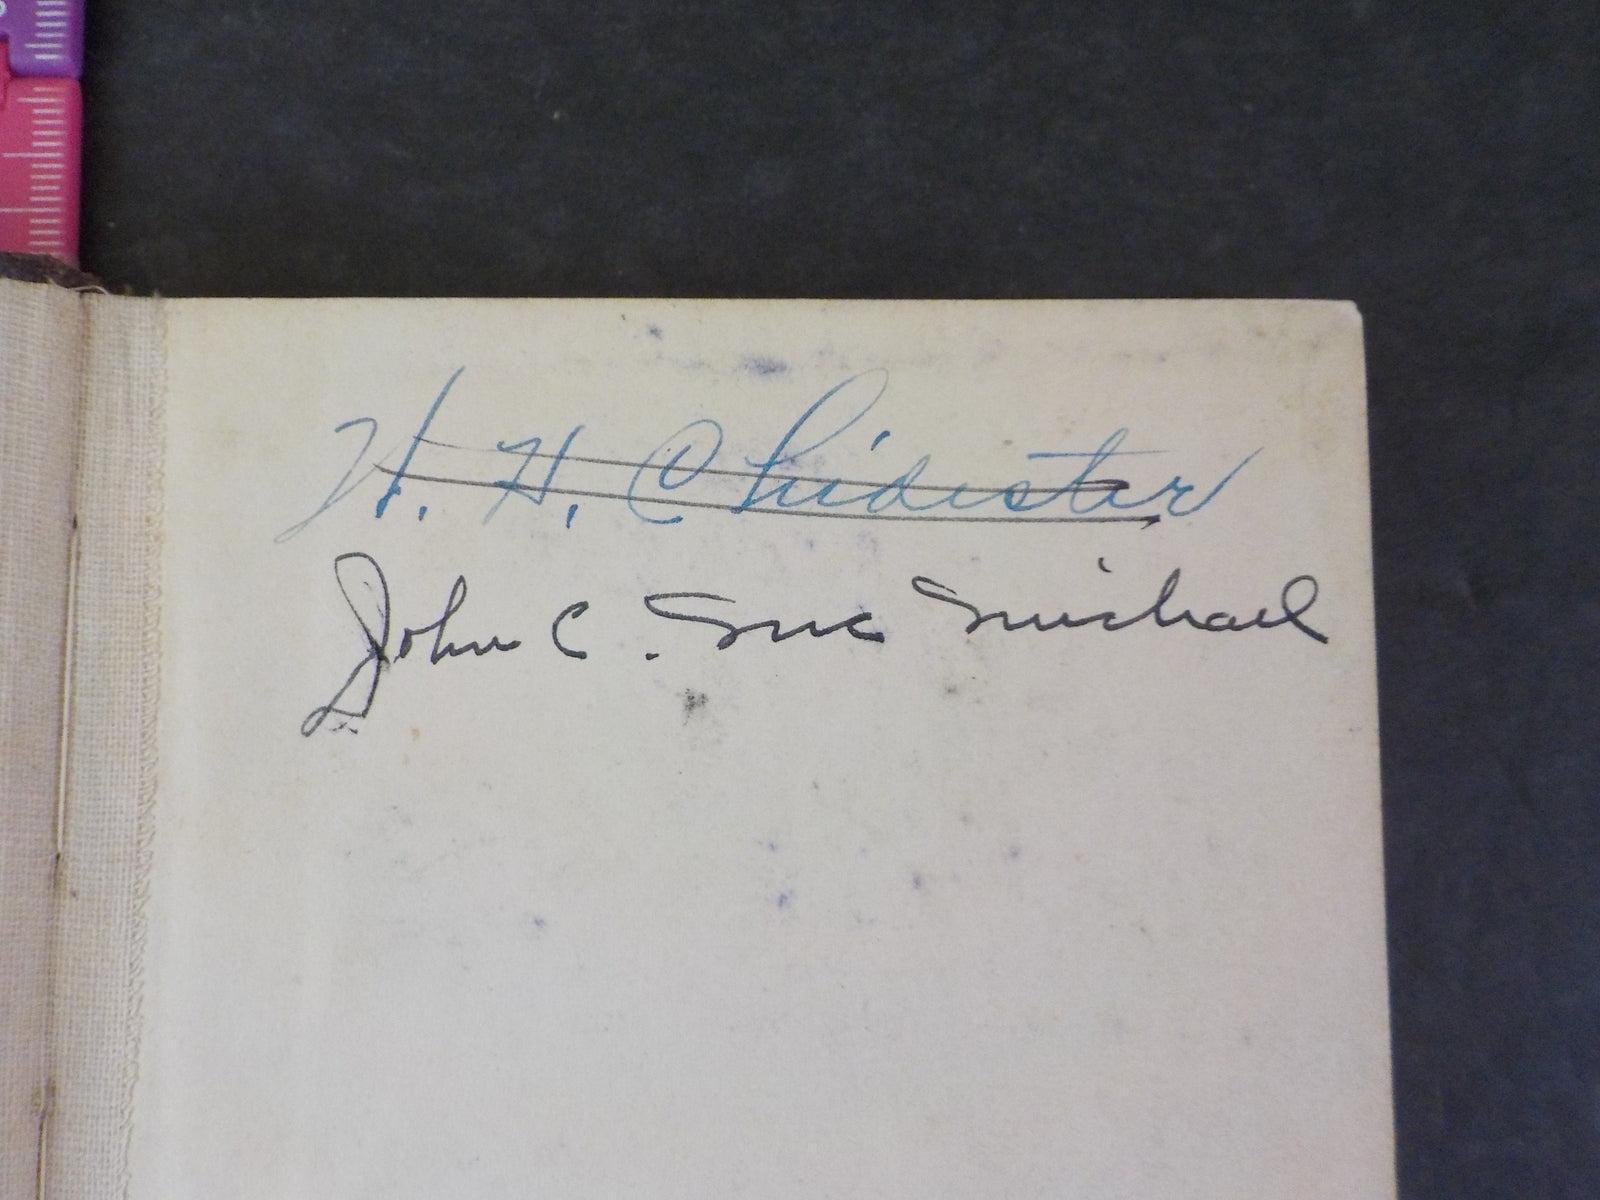 H. H. Chidester
John C. McMichael